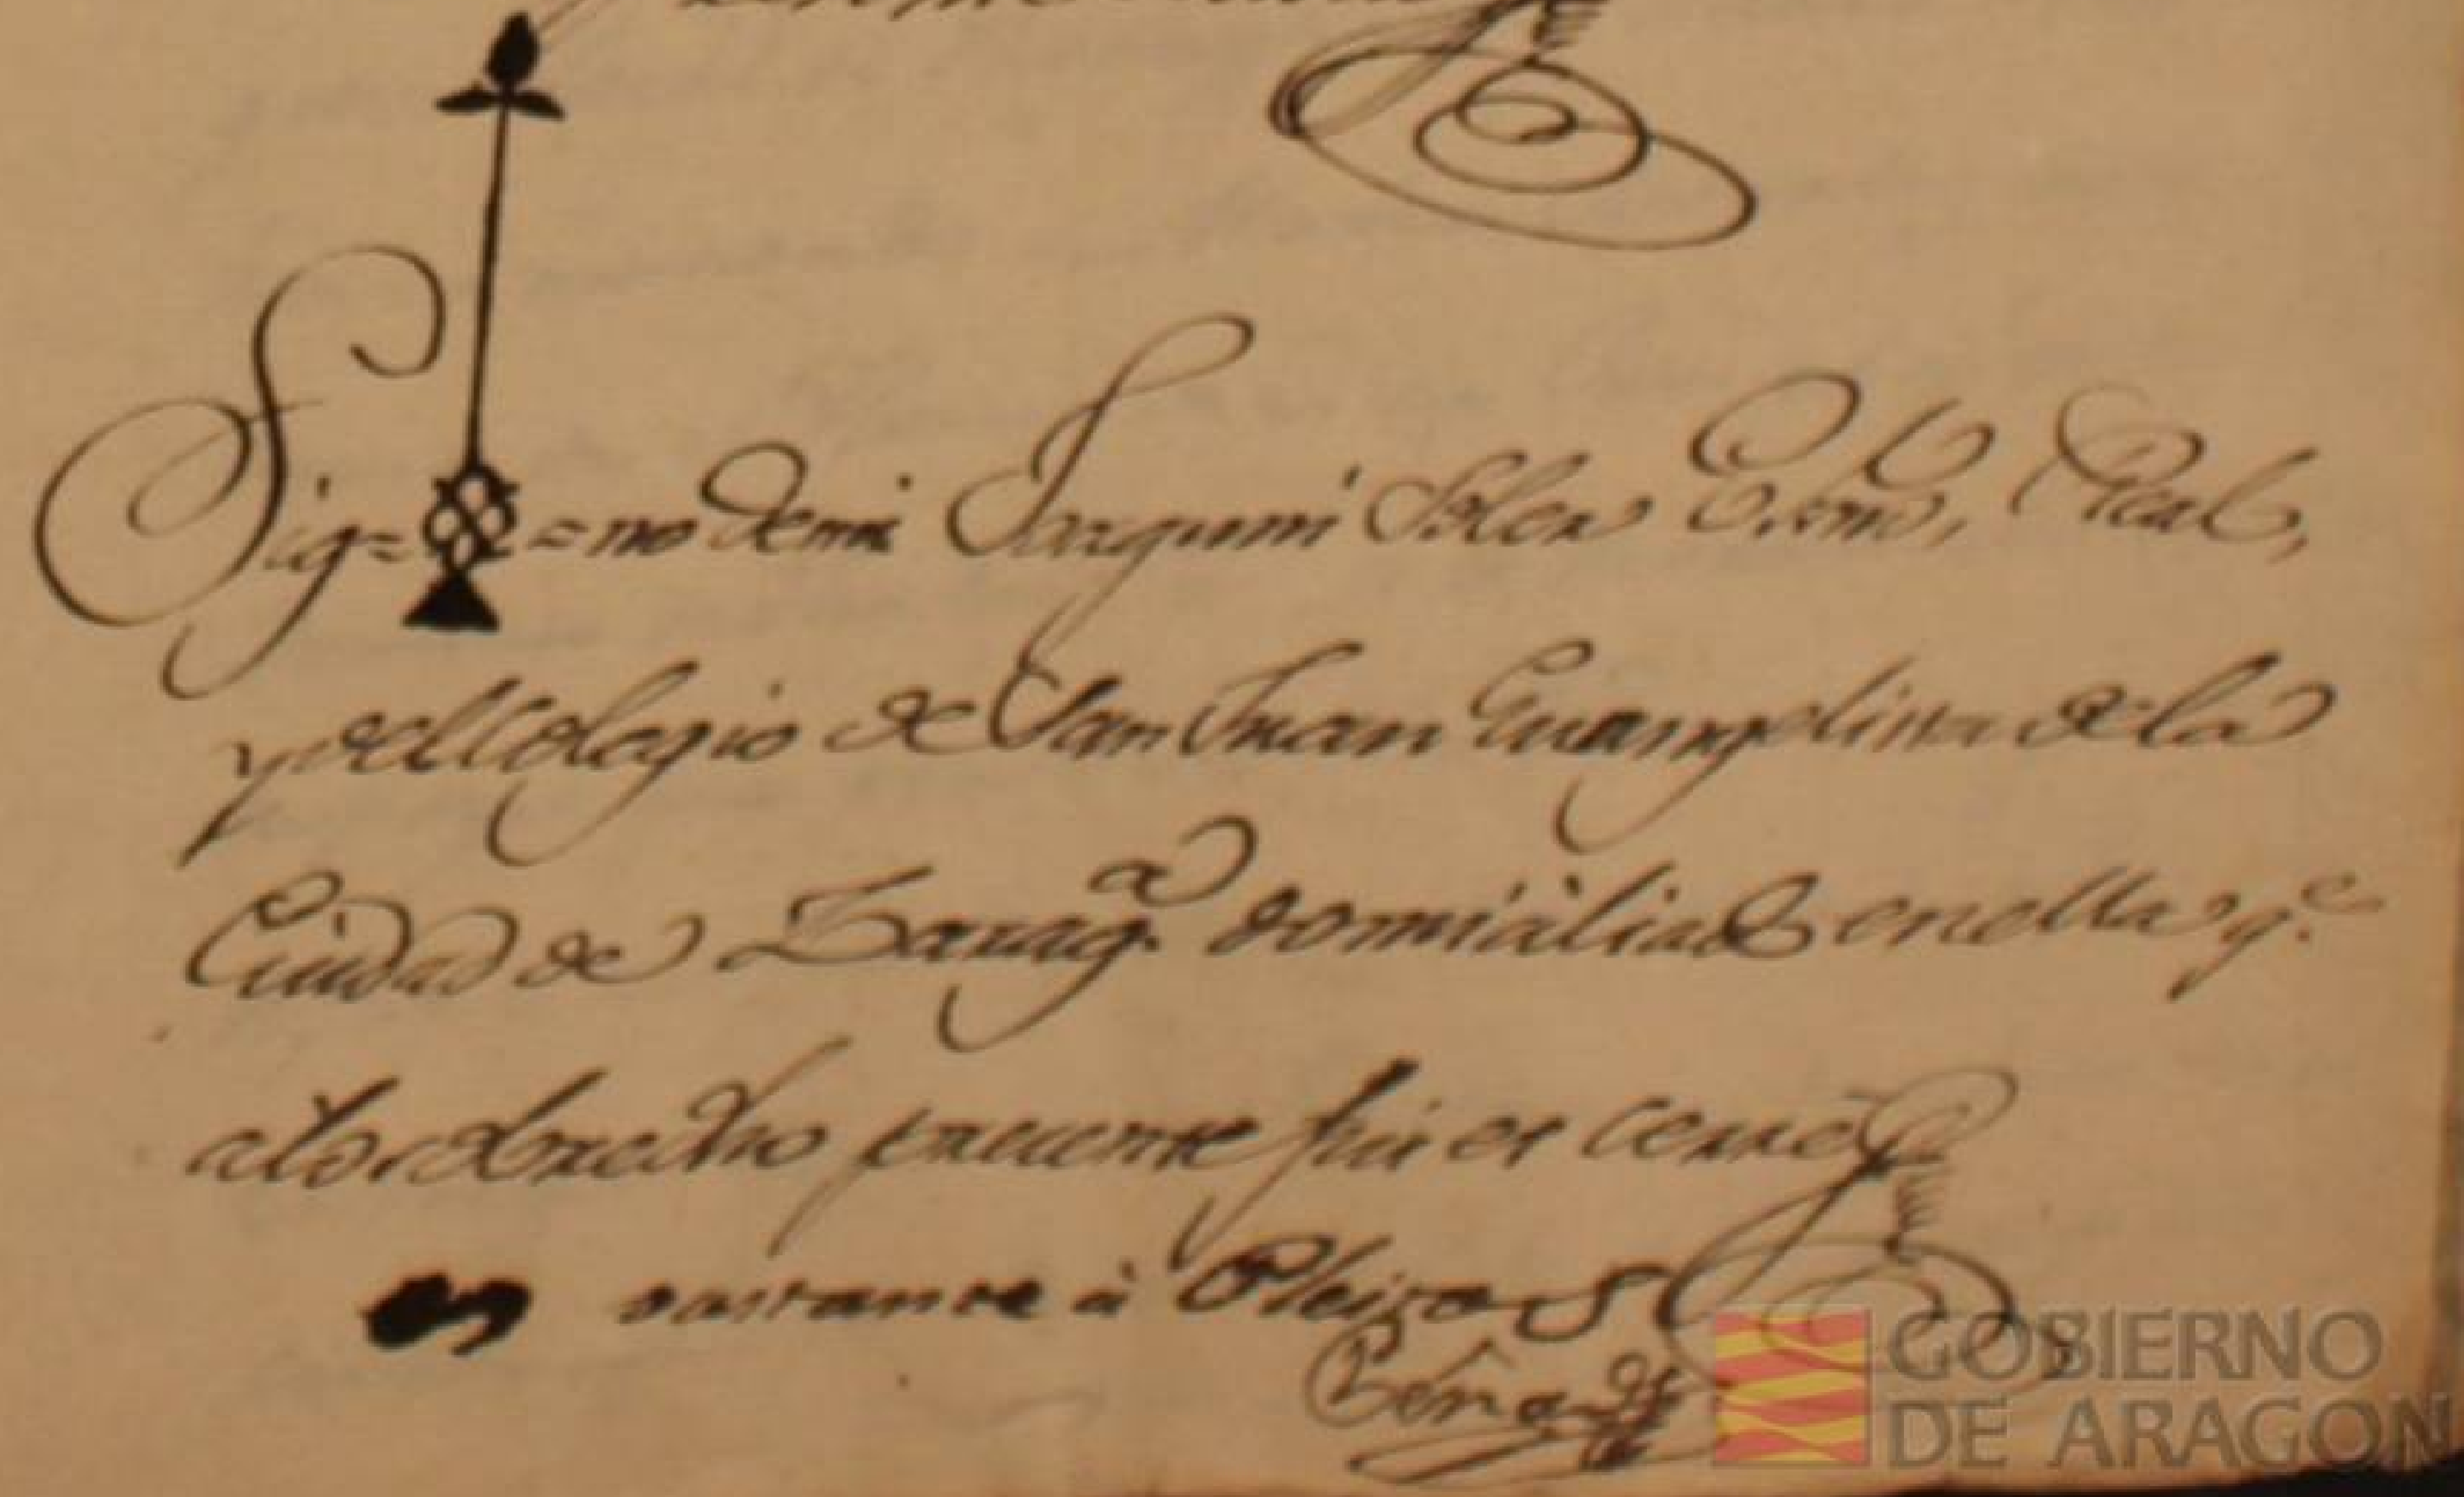 Sig= =no de mi Joaquin Soler Esno, Real,
y del Colegio de San Juan Evangelista de la
Ciudad de Zarag.a domiciliado en ella q.e
a lo sobre dho presente fui et cerre
bastante à Pleitos
GOBIERNO
DE ARAGON